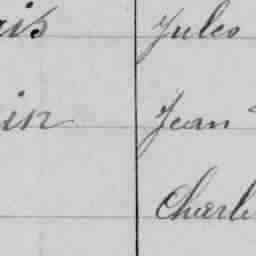 ais Jules
in Jean
Charl